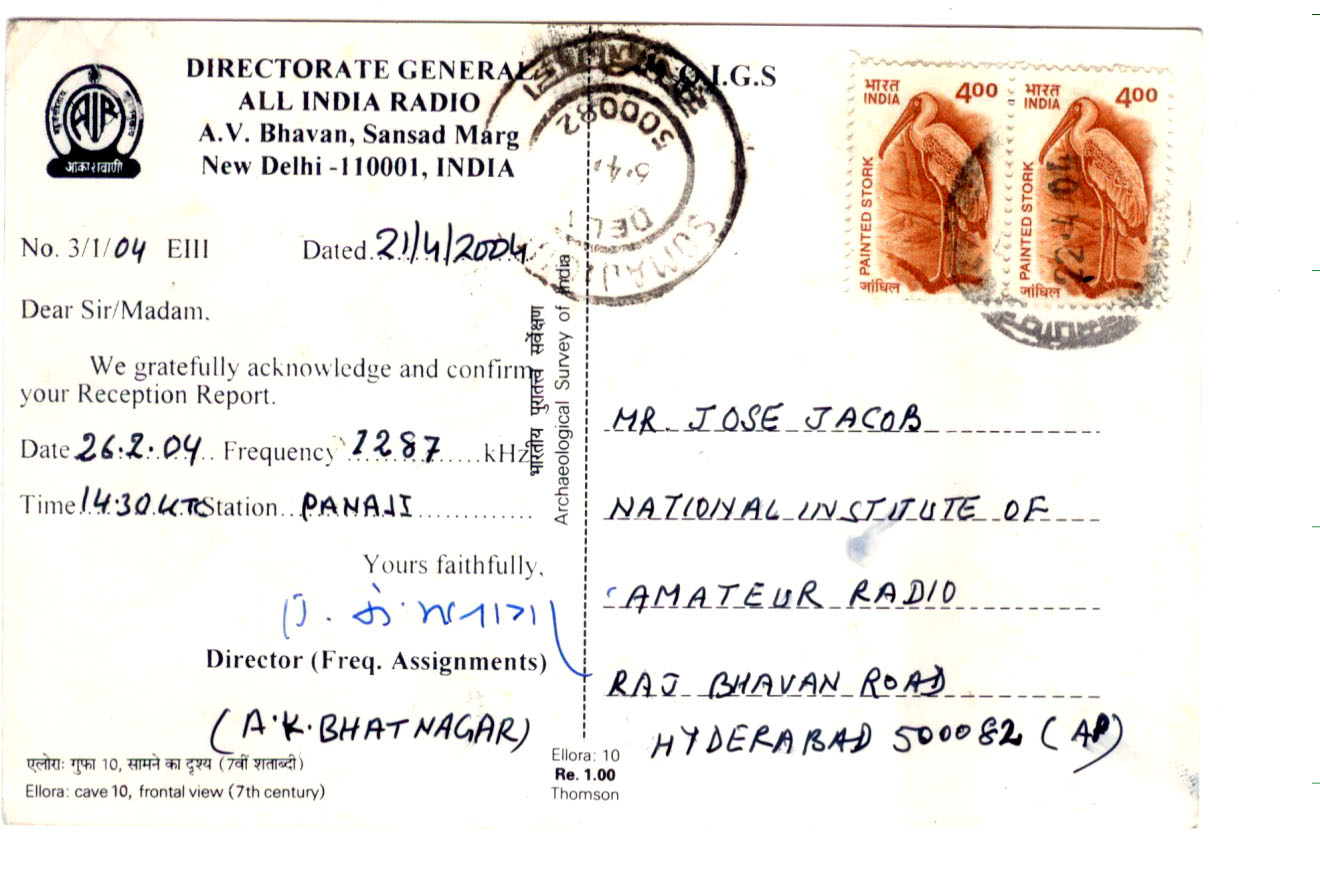 DIRECTORATE GENERAL
ALL INDIA RADIO
A.V. Bhavan, Sansad Marg
New Delhi -110001, INDIA
AIR
आकाशवाणी
O.I.G.S
500082
DEL
भारत
INDIA
400
PAINTED STORK
जांघिल
भारत
INDIA
400
PAINTED STORK
जांघिल
22.4.04
No. 3/1/04 EIII Dated 21/4/2004
Dear Sir/Madam.
We gratefully acknowledge and confirm
your Reception Report.
Date 26.2.04.. Frequency 1287.....kHz
Time 14.30 UTC Station.. PANAJI.............
Yours faithfully,
Director (Freq. Assignments)
(A.K. BHATNAGAR)
एलोराः गुफा 10, सामने का दृश्य (7वीं शताब्दी)
Ellora: cave 10, frontal view (7th century)
भारतीय पुरातत्व सर्वेक्षण
Archaeological Survey of India
Ellora: 10
Re. 1.00
Thomson
MR. JOSE JACOB
NATIONAL INSTITUTE OF
AMATEUR RADIO
RAJ BHAVAN ROAD
HYDERABAD 500082 (AP)